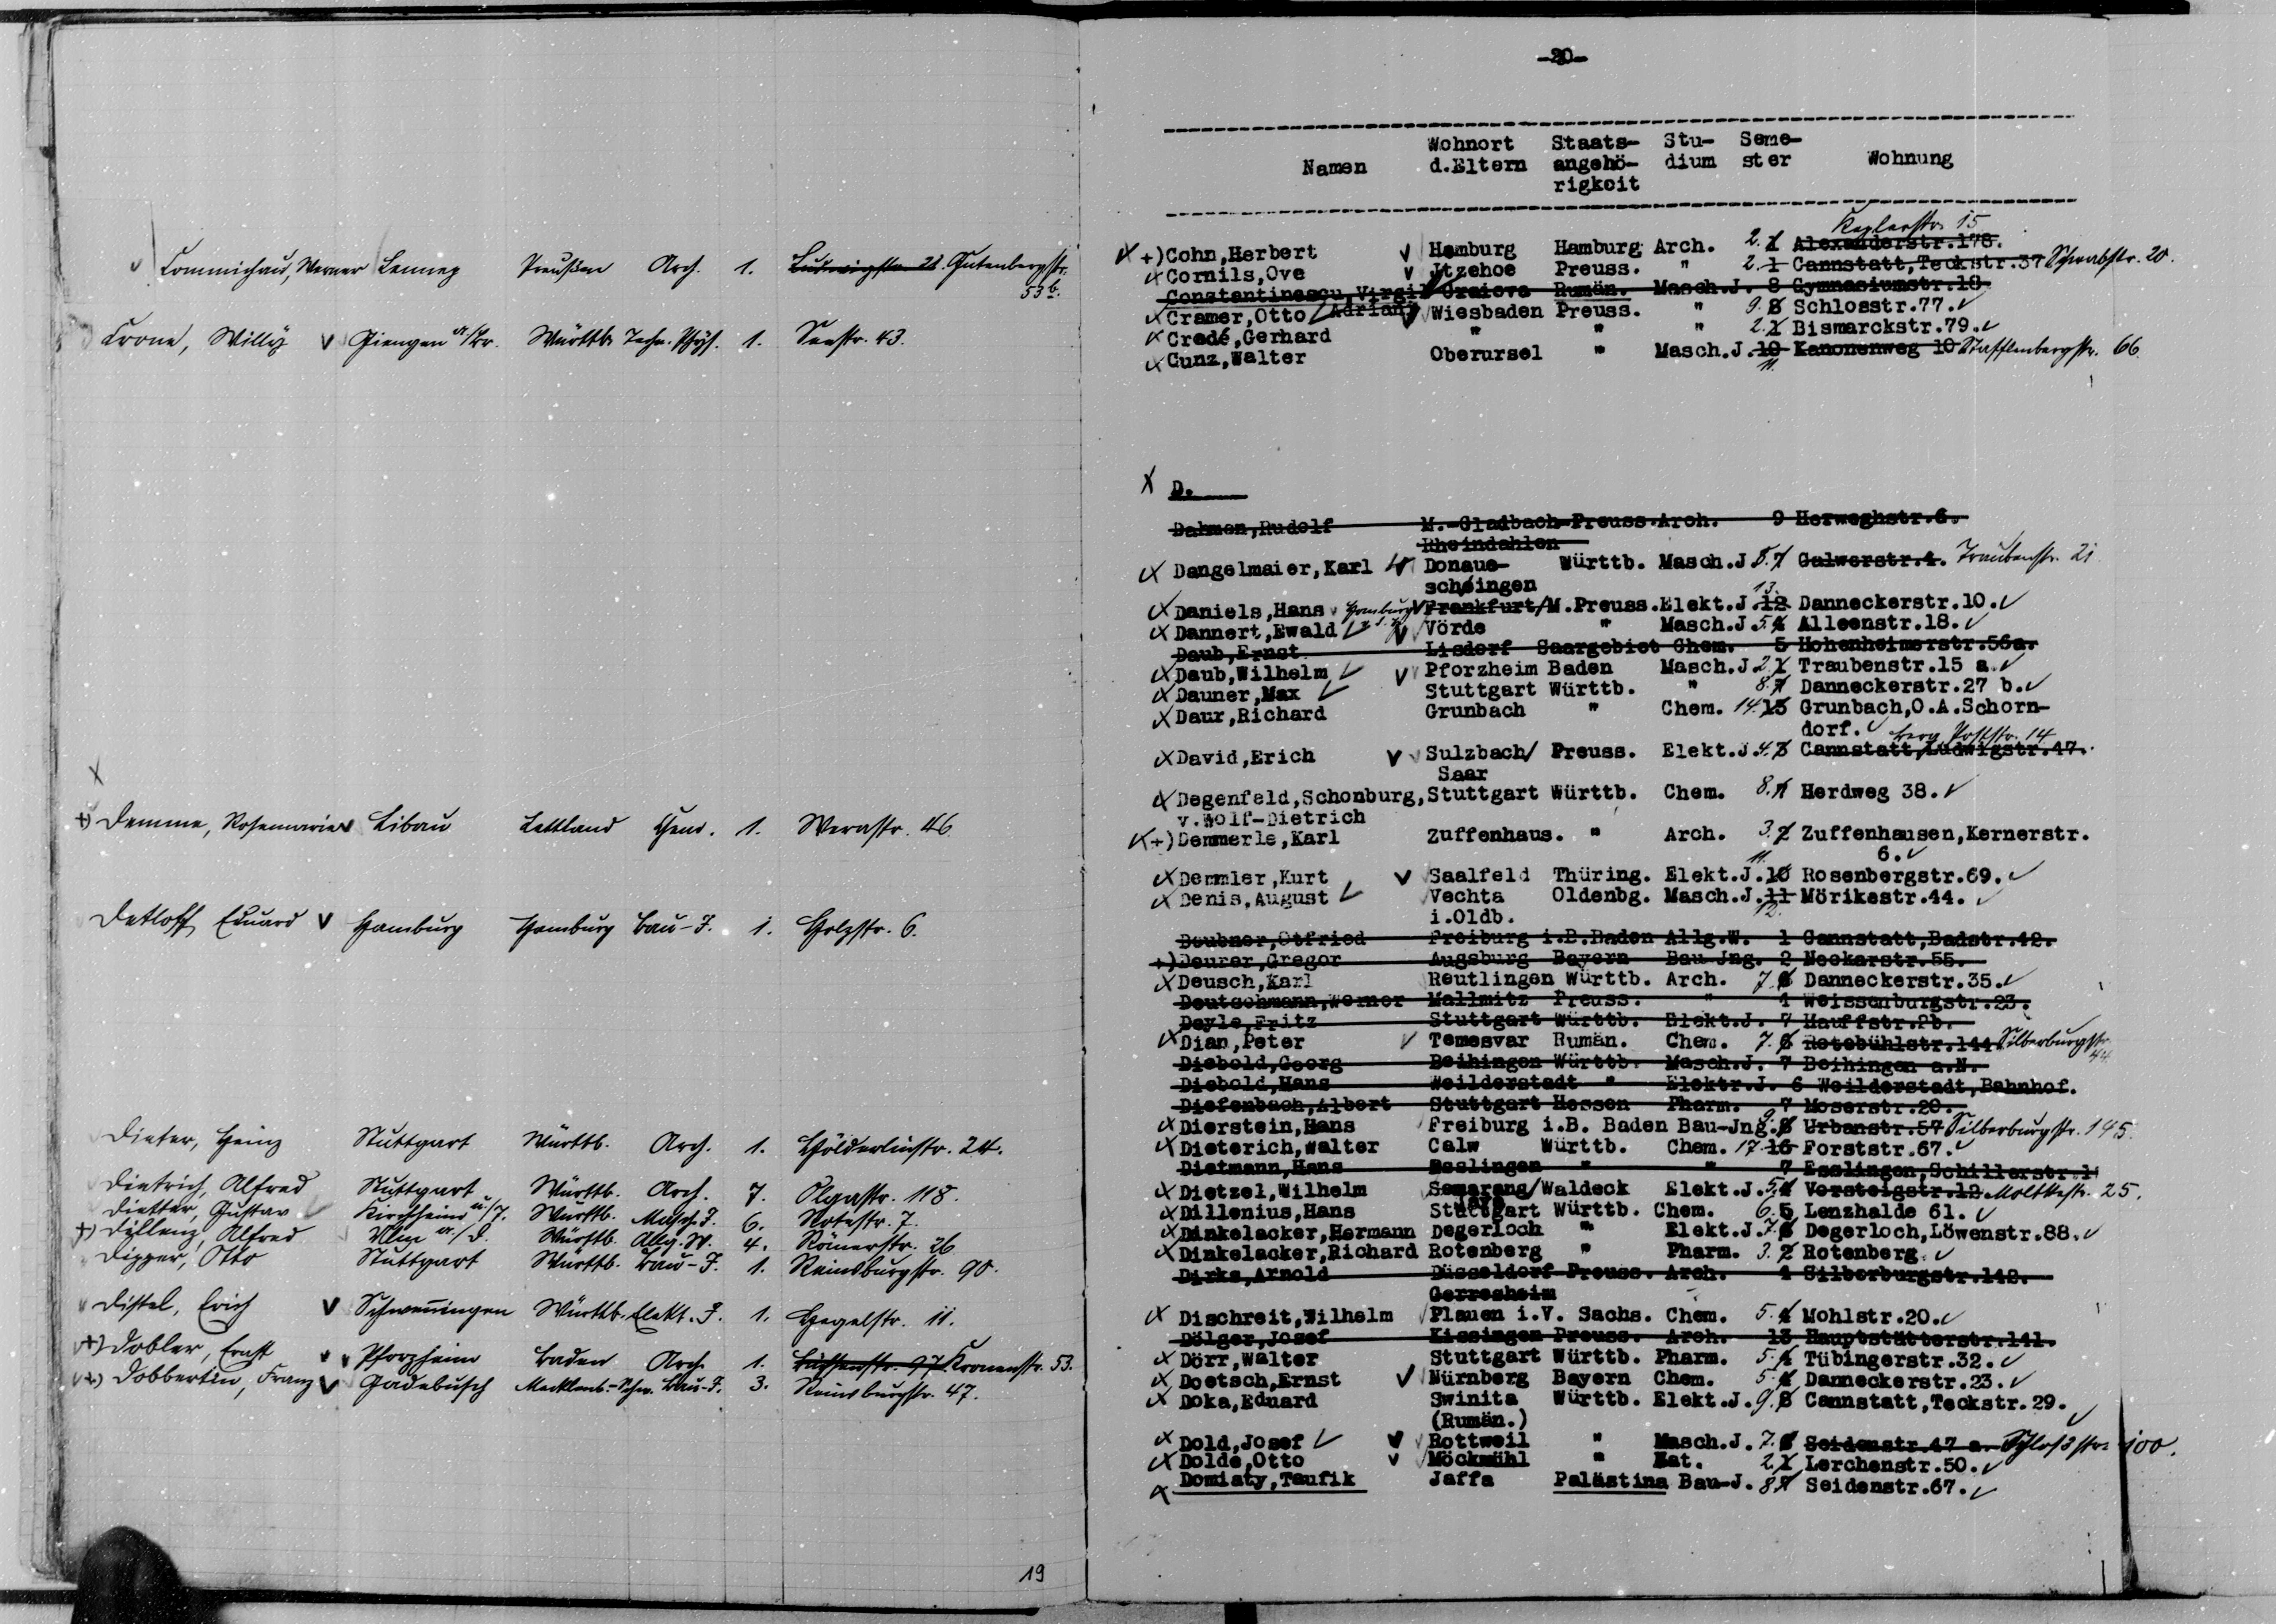 Commichau, Werner Lennep Preußen Arch. 1. Ludwigstr. 22. Gutenbergstr.
53b.
Crone, Willy Giengen a/Br. Württb. Techn. Phys. 1. Seestr. 43.
Demme, Rosemarie Libau Lettland Chem. 1. Werastr. 46
Detloff Eduard Hamburg Hamburg Bau-J. 1. Holzstr. 6.
Dieter, Heinz Stuttgart Württb. Arch. 1. Hölderlinstr. 24.
Dietrich, Alfred Stuttgart Württb. Arch. 7. Olgastr. 118.
Dietter, Gustav Kirchheim u/T. Württb. Masch. J. 6. Rotestr. 7.
+) Dillenz, Alfred Ulm a/D. Württb. Allg. W. 4. Römerstr. 26
Dipper, Otto Stuttgart Württb. Bau-J. 1. Reinsburgstr. 90.
Distel, Erich Schwenningen Württb. Elekt. J. 1. Hegelstr. 11.
+) Dobler, Ernst Pforzheim Baden Arch. 1. Büchsenstr. 97 Kronenstr. 53.
+) Dobbertin, Franz Gadebusch Mecklenb.-Schw. Bau-J. 3. Reinsburgstr. 47.
19
-20-
Wohnort Staats- Stu- Seme-
Namen d.Eltern angehö- dium ster Wohnung
rigkeit
Keplerstr. 15
+)Cohn,Herbert Hamburg Hamburg Arch. 2. 1 Alexanderstr.178.
Cornils,Ove Jtzehoe Preuss. " 2. 1 Cannstatt,Teckstr.37 Schwabstr. 20.
Constantinescu,Virgil Craiova Rumän. Masch.J. 8 Gymnasiumstr.18.
Cramer,Otto (Adrian) Wiesbaden Preuss. " 9. 8 Schlosstr.77.
Credé,Gerhard " " " 2. 1 Bismarckstr.79.
Cunz,Walter Oberursel " Masch.J. 10 Kanonenweg 10 Stafflenbergstr. 66.
11.
D.
Dahmen,Rudolf M.-Gladbach-Preuss.Arch. 9 Herweghstr.6.
Rheindahlen
Dangelmaier,Karl Donaue- Württb. Masch.J 8. 7 Calwerstr.4. Traubenstr. 21
schingen
13.
Daniels,Hans Homburg Frankfurt/M.Preuss.Elekt.J.12 Danneckerstr.10.
v.d.H.
Dannert,Ewald Vörde " Masch.J 5. 4 Alleenstr.18.
Daub,Ernst Lisdorf Saargebiet Chem. 5 Hohenheimerstr.56a.
Daub,Wilhelm Pforzheim Baden Masch.J 2. 1 Traubenstr.15 a.
Dauner,Max Stuttgart Württb. " 8. 7 Danneckerstr.27 b.
Daur,Richard Grunbach " Chem. 14. 13 Grunbach,O.A.Schorn-
dorf. Berg Poststr. 14
David,Erich Sulzbach/ Preuss. Elekt.J 4. 3 Cannstatt,Ludwigstr.47.
Saar
Degenfeld,Schonburg,Stuttgart Württb. Chem. 8. 7 Herdweg 38.
v.Wolf-Dietrich
+)Demmerle,Karl Zuffenhaus. " Arch. 3. 2 Zuffenhausen,Kernerstr.
6.
11.
Demmler,Kurt Saalfeld Thüring. Elekt.J.10 Rosenbergstr.69.
Denis,August Vechta Oldenbg. Masch.J.11 Mörikestr.44.
i.Oldb. 12.
Deubner,Otfried Freiburg i.B.Baden Allg.W. 1 Cannstatt,Badstr.42.
+)Deurer,Gregor Augsburg Bayern Bau Jng. 2 Neckarstr.55.
Deusch,Karl Reutlingen Württb. Arch. 7. 6 Danneckerstr.35.
Deutschmann,Werner Mallmitz Preuss. " 1 Weissenburgstr.23.
Deyle,Fritz Stuttgart Württb. Elekt.J. 7 Hauffstr.2b.
Dian,Peter Temesvar Rumän. Chem. 7. 6 Rotebühlstr.144 Silberburgstr.
44
Diebold,Georg Beihingen Württb. Masch.J. 7 Beihingen a.N.
Diebold,Hans Weilderstadt " Elektr.J. 6 Weilderstadt,Bahnhof.
Diefenbach,Albert Stuttgart Hessen Pharm. 7 Moserstr.20.
Dierstein,Hans Freiburg i.B. Baden Bau-Jng. 9. 8 Urbanstr.57 Silberburgstr. 145.
Dieterich,Walter Calw Württb. Chem. 17 16 Forststr.67.
Dietmann,Hans Esslingen " " 7 Esslingen,Schillerstr.1
Dietzel,Wilhelm Semarang/Waldeck Elekt.J. 5. 4 Versteigstr.12. Moltkestr. 25.
Java
Dillenius,Hans Stuttgart Württb. Chem. 6. 5 Lenzhalde 61.
Dinkelacker,Hermann Degerloch " Elekt.J. 7. 6 Degerloch,Löwenstr.88.
Dinkelacker,Richard Rotenberg " Pharm. 3. 2 Rotenberg.
Dirks,Arnold Düsseldorf Preuss. Arch. 4 Silberburgstr.142.
Gerresheim
Dischreit,Wilhelm Plauen i.V. Sachs. Chem. 5. 4 Mohlstr.20.
Dölger,Josef Kissingen Preuss. Arch. 13 Hauptstätterstr.141.
Dörr,Walter Stuttgart Württb. Pharm. 5. 4 Tübingerstr.32.
Doetsch,Ernst Nürnberg Bayern Chem. 5. 4 Danneckerstr.23.
Doka,Eduard Swinita Württb. Elekt.J. 9. 8 Cannstatt,Teckstr.29.
(Rumän.)
Dold,Josef Rottweil " Masch.J. 7. 6 Seidenstr.47 a. Schloßstr. 100.
Dolde,Otto Möckmühl " Mat. 2. 1 Lerchenstr.50.
Domiaty,Taufik Jaffa Palästina Bau-J. 8. 7 Seidenstr.67.